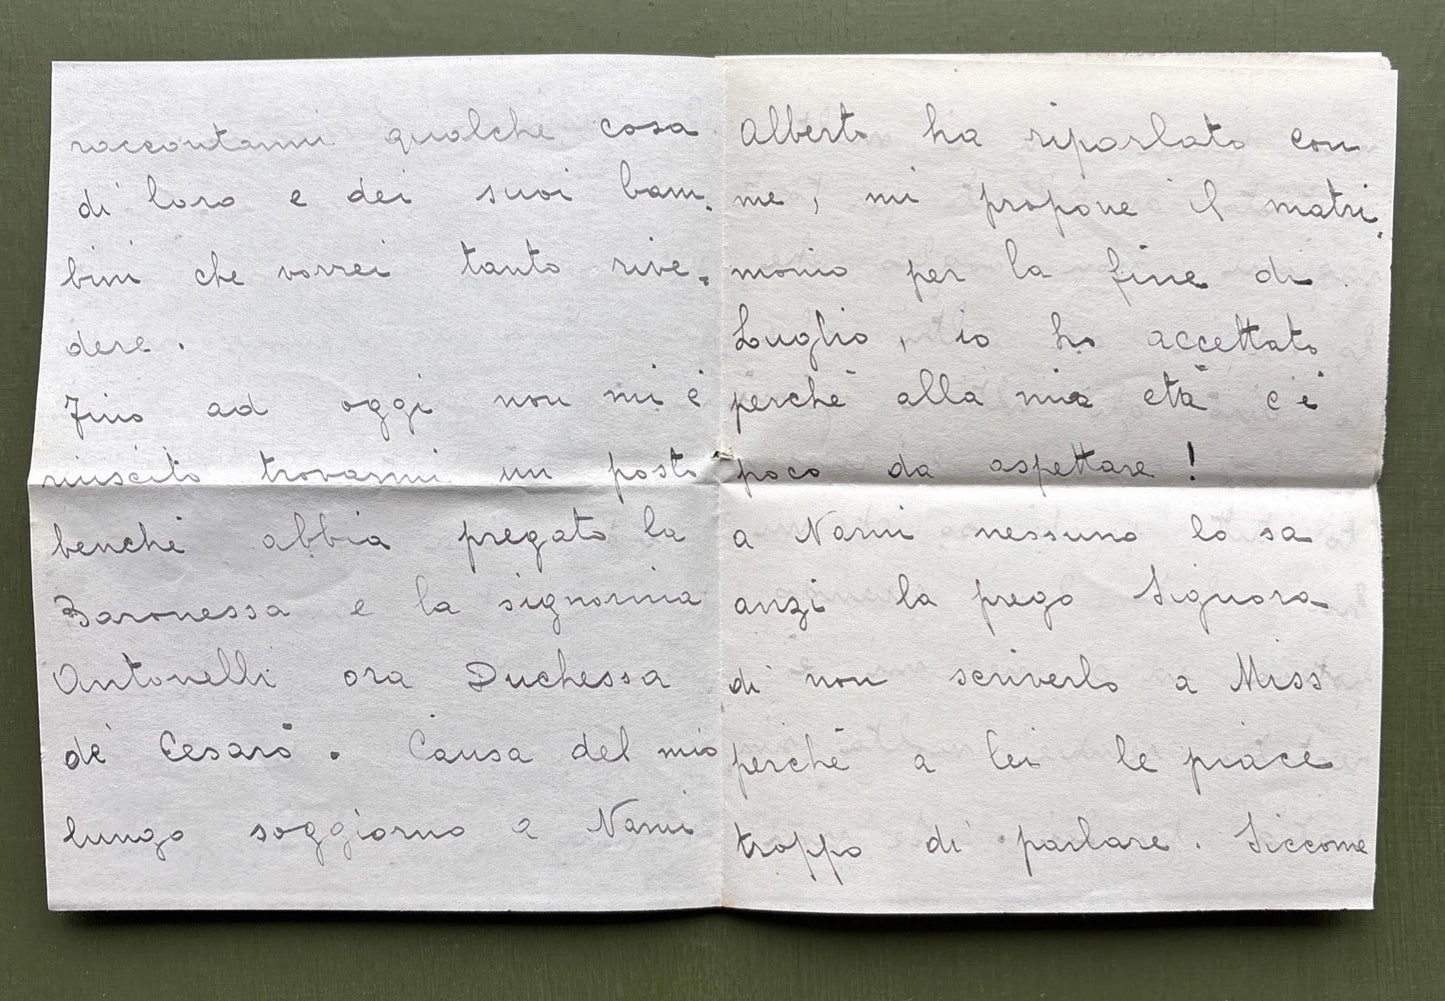 raccontarmi qualche cosa
di loro e dei suoi bam-
bini che vorrei tanto rive-
dere.
Fino ad oggi non mi è
riuscito trovarmi un posto
benchè abbia pregato la
Baronessa e la signorina
Antonelli ora Duchessa
de Cesarò. Causa del mio
lungo soggiorno a Narni
Alberto ha riparlato con
me, mi propone il matri-
monio per la fine di
Luglio, io ho accettato
perchè alla mia età c'è
poco da aspettare!
a Narni nessuno lo sa
anzi la prego Signora
di non scriverlo a Miss
perchè a lei le piace
troppo di parlare. Siccome